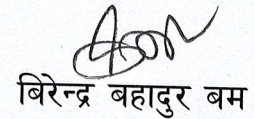 बिरेन्द्र बहादुर बम